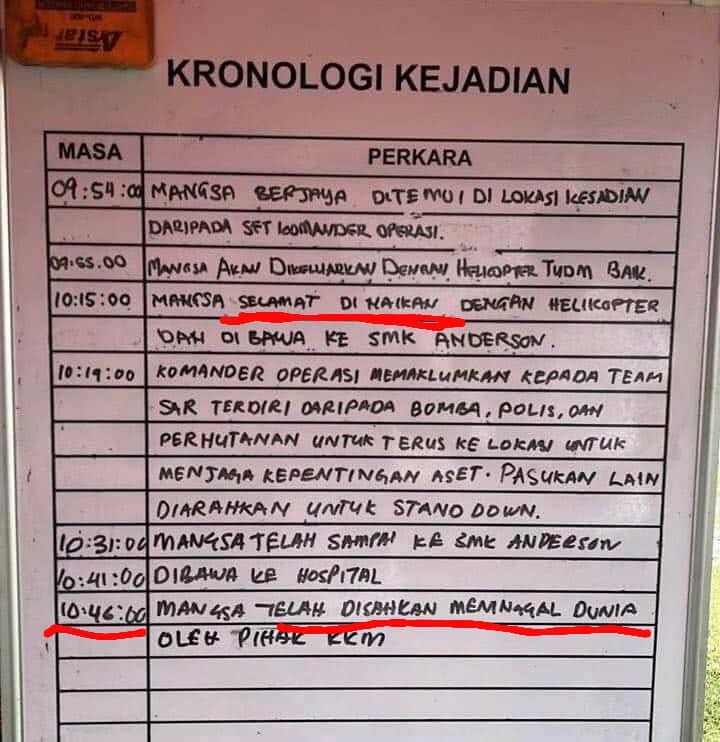 Astar
KRONOLOGI KEJADIAN
MASA PERKARA
09:54:00 MANGSA BERJAYA DITEMUI DI LOKASI KESADIAN
DARIPADA SET KOMANDER OPERASI.
09:55.00 MANGSA AKAN DIKELUARKAN DENGAN HELICOPTER TUDM BAIK.
10:15:00 MANGSA SELAMAT DI NAIKAN DENGAN HELIKOPTER
DAN DI BAWA KE SMK ANDERSON.
10:19:00 KOMANDER OPERASI MEMAKLUMKAN KEPADA TEAM
SAR TERDIRI DARIPADA BOMBA, POLIS, DAN
PERHUTANAN UNTUK TERUS KE LOKASI UNTUK
MENJAGA KEPENTINGAN ASET. PASUKAN LAIN
DIARAHKAN UNTUK STAND DOWN.
10:31:00 MANGSA TELAH SAMPAI KE SMK ANDERSON
10:41:00 DIBAWA KE HOSPITAL
10:46:00 MANGSA TELAH DISAHKAN MENINGGAL DUNIA
OLEH PIHAK KKM